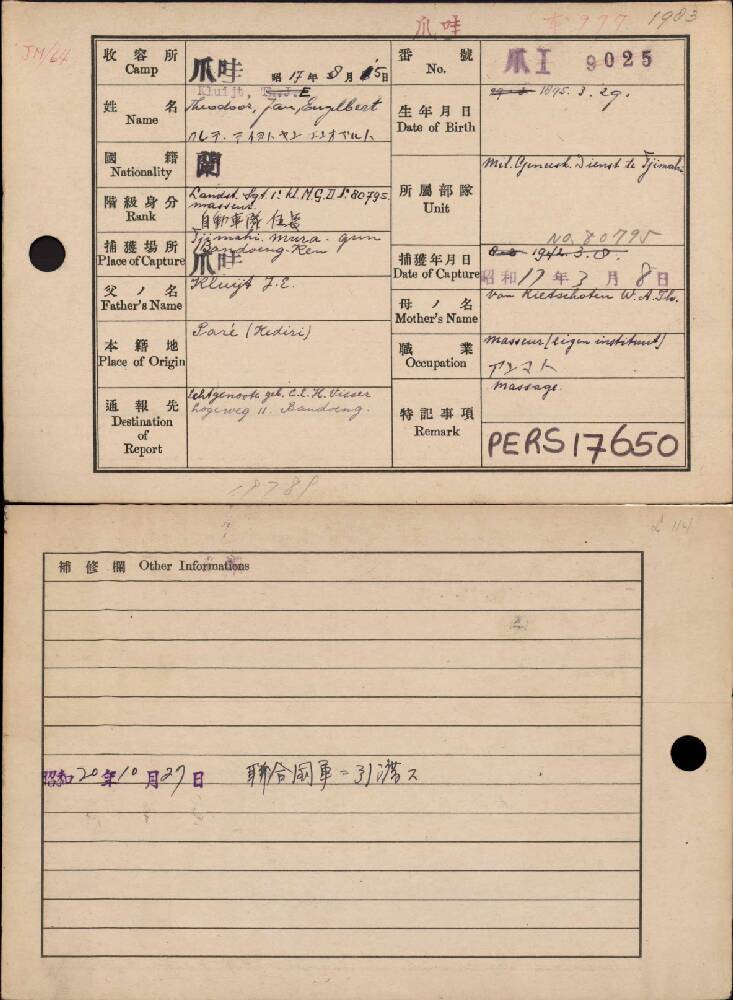 爪哇
1983
JM/64
収容所 Camp
爪哇 昭17年8月15日
番號 No.
爪I 9025
姓名 Name
Kluijt, Th.J.E
Theodoor, Jan, Engelbert
生年月日 Date of Birth
1895.3.29.
國籍 Nationality
蘭
階級身分 Rank
Landst. Sgt. 1e kl. M.G.D. S. 80795.
masseur.
自動車隊
所屬部隊 Unit
Mil. Geneesk. Dienst te Tjimahi
No. 80795
捕獲場所 Place of Capture
Tjimahi. mura. gun
Bandoeng-Ken
爪哇
捕獲年月日 Date of Capture
1942.3.8.
昭和17年3月8日
父ノ名 Father's Name
Kluijt J.E.
母ノ名 Mother's Name
van Rietschoten W.A.
本籍地 Place of Origin
Paré (Kediri)
職業 Occupation
masseur (eigen instituut)
アンマト
通報先 Destination of Report
Echtgenoote geb. C.L.H. Visser
Logeweg 11. Bandoeng.
特記事項 Remark
massage.
PERS 17650
18789
L 114
補修欄 Other Informations
昭和20年10月27日 聯合国軍ニ引渡ス